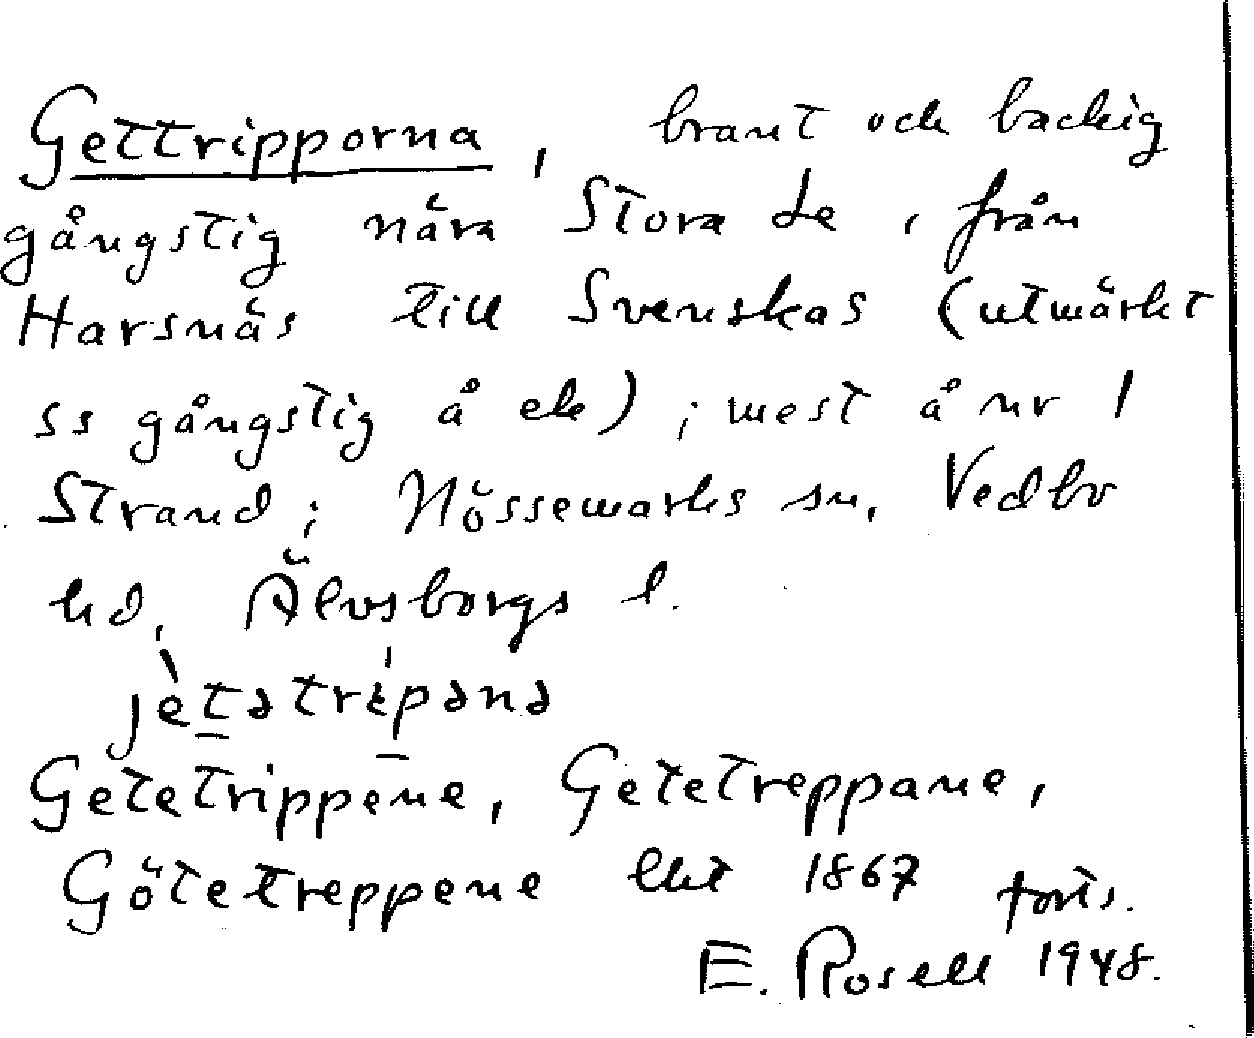 Gettripporna, brant och backig
gångstig nära Stora Le, från
Harsnäs till Svenskas (utmärkt
ss gångstig å ek); mest å nr 1
Strand; Nössemarks sn, Vedbo
hd, Älvsborgs l.
jètətrìpənə
Getetrippene, Getetreppane,
Götetreppene Ekt 1867 forts.
E. Rosell 1948.